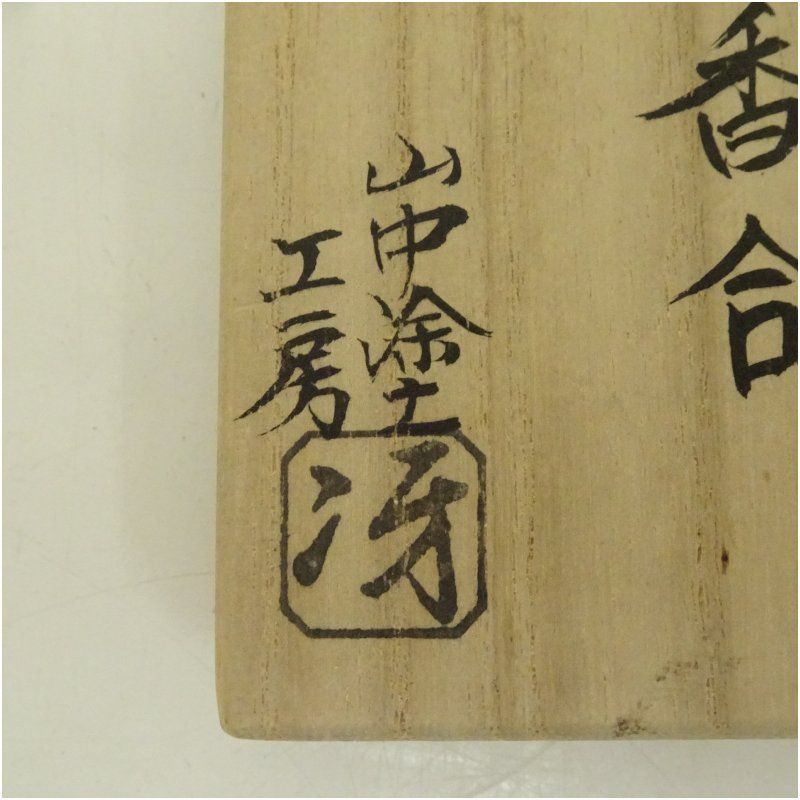 香合
山中塗
工房
冴